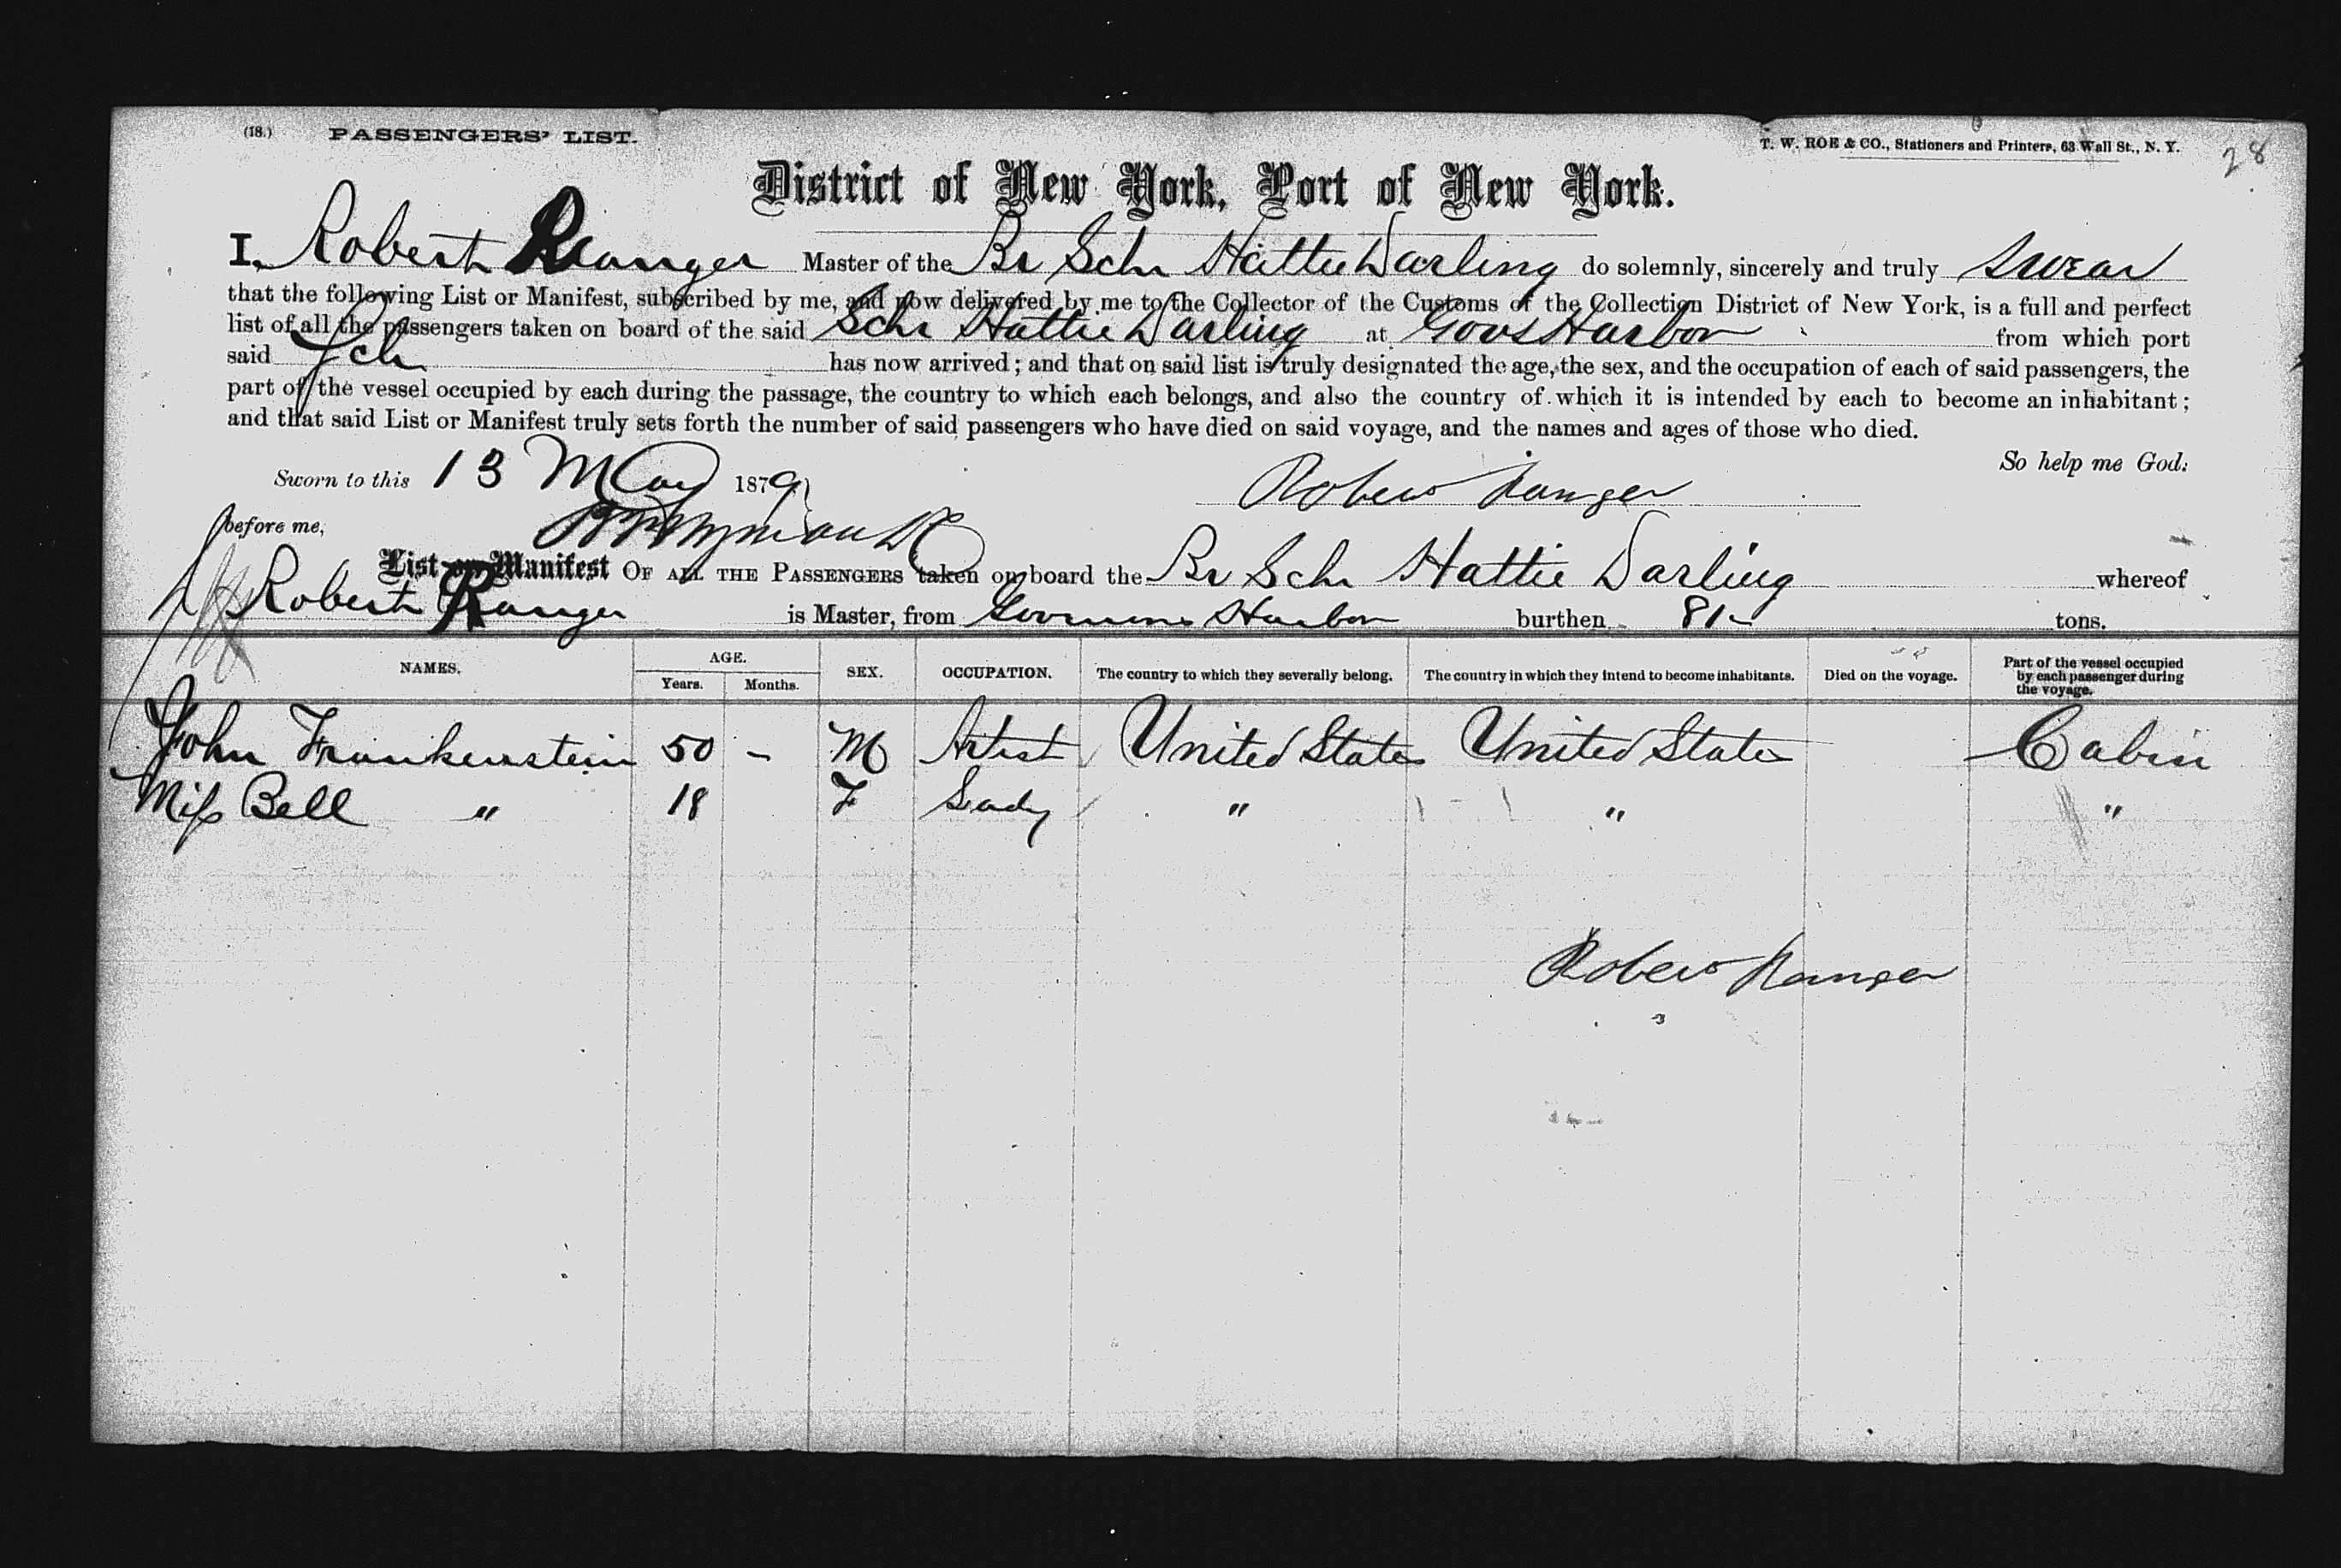 (18.) PASSENGERS' LIST.
T. W. ROE & CO., Stationers and Printers, 63 Wall St., N. Y.
28
District of New York, Port of New York.
I, Robert Ranger Master of the Br Schr Hattie Darling do solemnly, sincerely and truly swear
that the following List or Manifest, subscribed by me, and now delivered by me to the Collector of the Customs of the Collection District of New York, is a full and perfect
list of all the passengers taken on board of the said Schr Hattie Darling at Govs Harbor from which port
said Sch has now arrived; and that on said list is truly designated the age, the sex, and the occupation of each of said passengers, the
part of the vessel occupied by each during the passage, the country to which each belongs, and also the country of which it is intended by each to become an inhabitant;
and that said List or Manifest truly sets forth the number of said passengers who have died on said voyage, and the names and ages of those who died.
So help me God:
Sworn to this 13 May 1879
Robert Ranger
before me,
List or Manifest OF ALL THE PASSENGERS taken on board the Br Schr Hattie Darling whereof
Robert Ranger is Master, from Harbor burthen 81 tons.
NAMES. AGE. Years. Months. SEX. OCCUPATION. The country to which they severally belong. The country in which they intend to become inhabitants. Died on the voyage. Part of the vessel occupied by each passenger during the voyage.
John Frankenstein 50 - M Artist United States United States Cabin
Miss Bell " 18 F Lady " " "
Robert Ranger